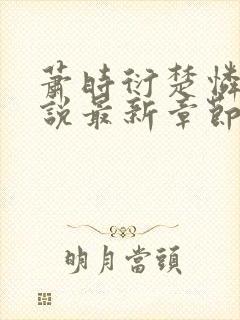 蕭時衍楚憐
說最新章節
明月當頭